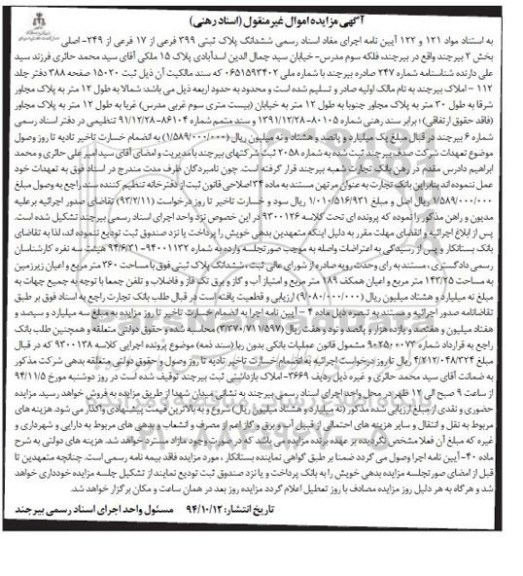 آگهی مزایده اموال غیرمنقول (اسناد رهنی)
به استناد مواد ۱۲۱ و ۱۲۲ آیین نامه اجرای مفاد اسناد رسمی ششدانگ پلاک ثبتی ۳۹۹ فرعی از ۱۷ فرعی از ۲۴۹- اصلی
بخش ۲ بیرجند واقع در بیرجند، فلکه سوم مدرس- خیابان سید جمال الدین اسدآبادی پلاک ۱۵ ملکی آقای سید محمد حائری فرزند سید
علی دارنده شناسنامه شماره ۲۴۷ صادره بیرجند با شماره ملی ۰۶۵۱۵۹۳۴۰۲ که سند مالکیت آن ذیل ثبت ۱۵۰۲۰ صفحه ۳۸۸ دفتر جلد
۱۱۲ - املاک بیرجند به نام مالک اولیه صادر و تسلیم شده است و محدود به حدود اربعه ذیل می باشد: شمالا به طول ۱۲ متر به پلاک مجاور
شرقا به طول ۳۰ متر به پلاک مجاور جنوبا به طول ۱۲ متر به خیابان (بیست متری سوم غربی مدرس) غربا به طول ۱۲ متر به پلاک مجاور
(فاقد حقوق ارتفاقی) ؛ برابر سند رهنی شماره ۸۰۱۰۵-۱۳۹۱/۱۲/۲۸ و سند متمم شماره ۸۶۱۰۴-۹۱/۱۲/۲۸ تنظیمی در دفتر اسناد رسمی
شماره ۶ بیرجند در قبال مبلغ یک میلیارد و پانصد و هشتاد و نه میلیون ریال (۱/۵۸۹/۰۰۰/۰۰۰) به انضمام خسارت تاخیر تادیه تا روز وصول
موضوع تعهدات شرکت صدف بیرجند ثبت شده به شماره ۲۰۵۸ ثبت شرکتهای بیرجند با مدیریت و امضای آقای سید امیر علی حائری و محمد
ابراهیم دادرس مقدم در رهن بانک تجارت شعبه بیرجند قرار گرفته است. چون نامبردگان ظرف مدت مندرج در اسناد فوق به تعهدات خود
عمل ننموده اند بنابراین بانک تجارت به عنوان مرتهن مستند به ماده ۳۴ اصلاحی قانون ثبت از دفترخانه تنظیم کننده سند راجع به وصول مبلغ
۱/۵۸۹/۰۰۰/۰۰۰ ریال اصل و مبلغ ۱/۰۰۱/۵۱۶/۹۳۱ ریال سود و خسارت تاخیر تا روز درخواست (۹۳/۲/۱۱) تقاضای صدور اجرائیه بر علیه
مدیون و راهن مذکور را نموده که پرونده ای تحت کلاسه ۹۳۰۰۱۲۶ در این خصوص نزد واحد اجرای اسناد رسمی بیرجند تشکیل شده است.
پس از ابلاغ اجرائیه و انقضای مهلت مقرر به دلیل اینکه متعهدین بدهی خویش را پرداخت یا نزد صندوق ثبت تودیع ننموده اند، لذا به تقاضای
بانک بستانکار و پس از رسیدگی به اعتراضات واصله به موجب صورتجلسه وارده به شماره ۹۴۰۰۱۱۳۲-۹۴/۶/۳۱ هیئت سه نفره کارشناسان
رسمی دادگستری، مستند به رای وحدت رویه صادره از شورای عالی ثبت، ششدانگ پلاک ثبتی فوق با مساحت ۳۶۰ متر مربع و اعیان زیرزمین
به مساحت ۱۴۳/۲۵ متر مربع و اعیان همکف ۱۸۹ متر مربع و امتیاز آب و گاز و برق تک فاز و فاضلاب و تلفن جمعا با توجه به جمیع جهات به
مبلغ نه میلیارد و هشتاد میلیون ریال (۹/۰۸۰/۰۰۰/۰۰۰) ارزیابی و قطعیت یافته است در قبال طلب بانک تجارت راجع به اسناد فوق بر طبق
تقاضانامه صدور اجرائیه و مستند به تبصره ذیل ماده ۴ - آیین نامه اجرا به انضمام خسارت تاخیر تا روز مزایده به مبلغ سه میلیارد و سیصد و
هفتاد میلیون و هفتصد و یازده هزار و پانصد و نود و هفت ریال (۳/۳۷۰/۷۱۱/۵۹۷) محاسبه شده و حقوق دولتی متعلقه و همچنین طلب بانک
راجع به قرارداد شماره ۹۰۲۵۰۰۰۷۳ مشمول قانون عملیات بانکی بدون ربا (سند ذمه) موضوع پرونده اجرایی کلاسه ۹۳۰۰۱۳۸ که در قبال
مبلغ ۴/۲۱۲/۰۴۸/۳۲۴ ریال تا روز درخواست اجرائیه به انضمام خسارت تاخیر تادیه تا روز وصول و حقوق دولتی متعلقه بدهی شرکت مذکور
به ضمانت آقای سید محمد حائری و غیره ذیل ردیف ۳۶۶۹- املاک بازداشتی ثبت بیرجند توقیف شده است در روز دوشنبه مورخ ۹۴/۱۱/۵
از ساعت ۹ صبح الی ۱۲ ظهر در محل واحد اجرای اسناد رسمی بیرجند به نشانی میدان شهدا از طریق مزایده به فروش خواهد رسید. مزایده
حضوری و نقدی از مبلغ ارزیابی شده مذکور (نه میلیارد و هشتاد میلیون ریال) شروع و به بالاترین قیمت پیشنهادی واگذار می شود. هزینه های
مربوط به نقل و انتقال و سایر هزینه های احتمالی از قبیل آب و برق و گاز اعم از مصرف و انشعاب و بدهی های مربوط به دارایی و شهرداری و
غیره که مبلغ آن فعلا مشخص نگردیده بر عهده برنده مزایده می باشد که در صورت وجود مازاد مسترد خواهد شد. هزینه های دولتی به شرح
ماده ۴۰- آیین نامه اجرا وصول می گردد ضمنا بر طبق گواهی نماینده بستانکار، مورد مزایده فاقد بیمه نامه رسمی است. چنانچه متعهدین تا
قبل از امضای صورتجلسه مزایده بدهی خویش را به بانک پرداخت و یا نزد صندوق ثبت تودیع نمایند از تشکیل جلسه مزایده خودداری خواهد
شد و هرگاه به هر دلیل روز مزایده مصادف با روز تعطیل اعلام گردد مزایده روز بعد در همان ساعت و مکان برگزار خواهد شد.
تاریخ انتشار: ۹۴/۱۰/۱۲ مسئول واحد اجرای اسناد رسمی بیرجند